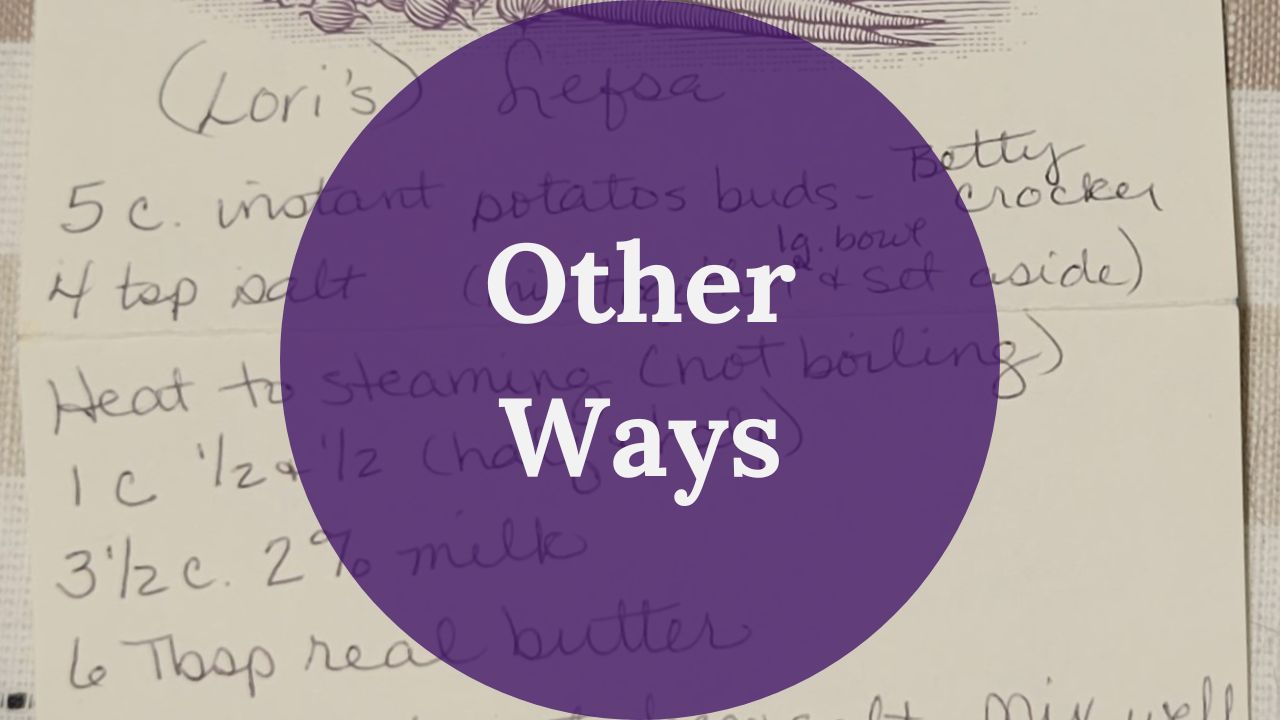 (Lori's) Lefsa
5 c. instant potatos buds - Betty
crocker
4 tsp salt ( lg. bowl & set aside)
Heat to steaming (not boiling)
1 c 1/2 & 1/2 (half & half)
3 1/2 c. 2% milk
6 Tbsp real butter
Mix well
Other
Ways